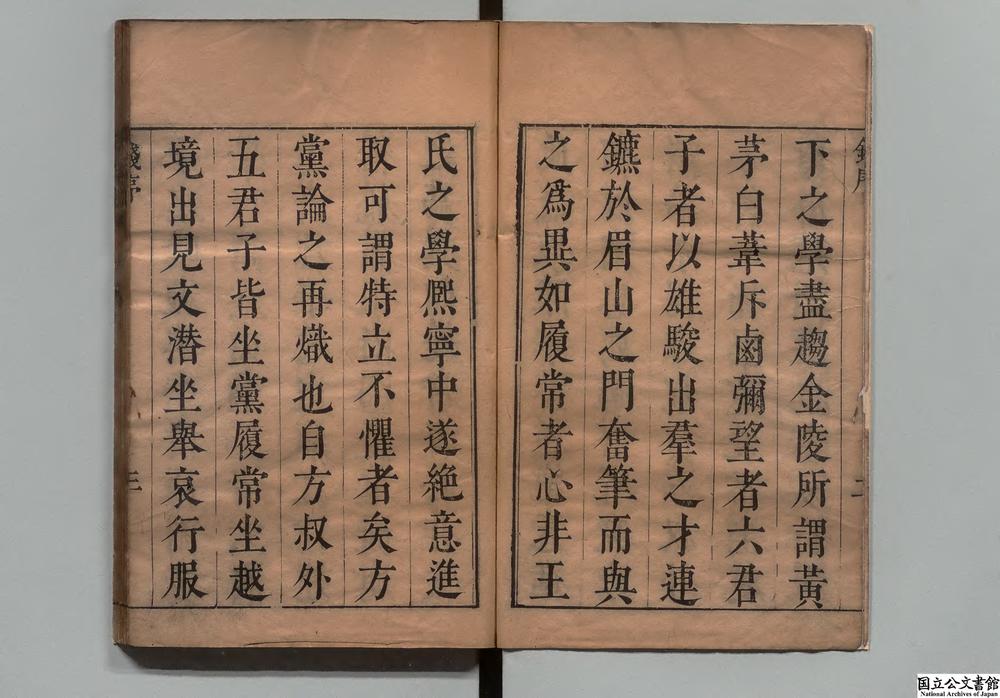 下之學盡趨金陵所謂黃
茅白葦斥鹵彌望者六君
子者以雄駿出羣之才連
鑣於眉山之門奮筆而與
之爲異如履常者心非王
氏之學熈寧中遂絕意進
取可謂特立不懼者矣方
黨論之再熾也自方叔外
五君子皆坐黨履常坐越
境出見文潛坐舉哀行服
錢序
三
国立公文書館
National Archives of Japan